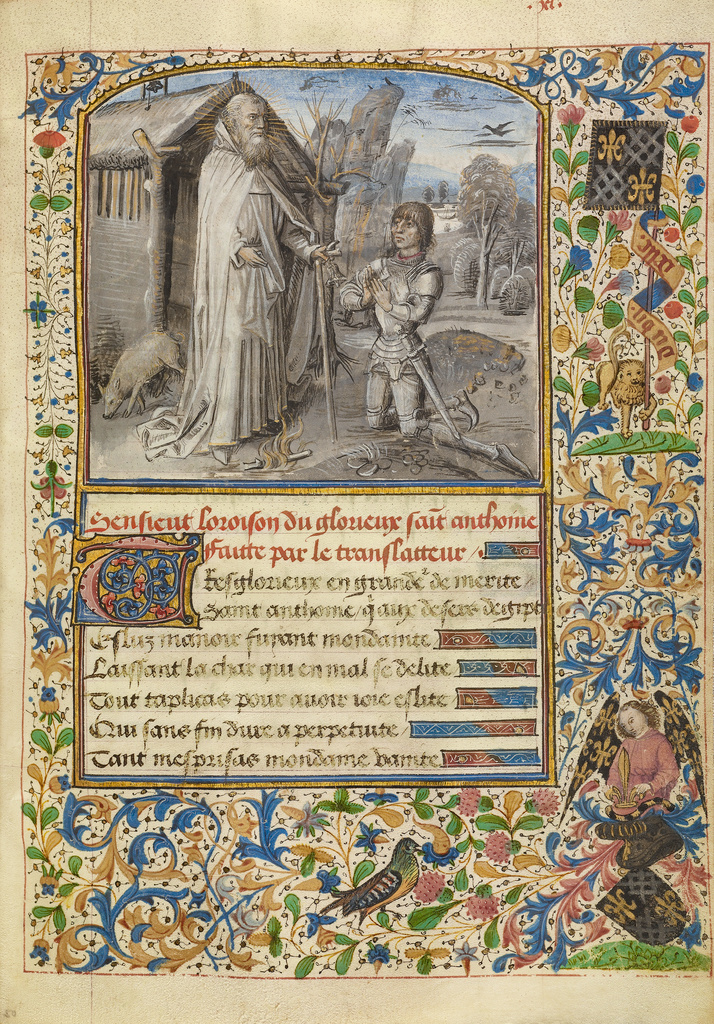 .xl.
Sensieut loroison du glorieux saīt anthoine
faitte par le translatteur
Tresglorieux en grande de merite
Saint anthoine / q aux desers degipt
Esluz manoir fuiant mondainite
Laissant la char qui en mal se delite
Tout taplicas pour auoir ioie eslite
Qui sans fin dure a perpetuite
Tant mesprisas mondaine vanite